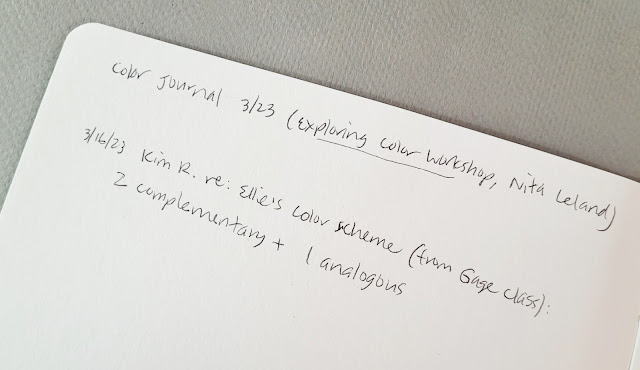 Color Journal 3/23 (Exploring Color Workshop, Nita Leland)
3/16/23 Kim R. re: Ellie's color scheme (from Gage class):
2 complementary + 1 analogous